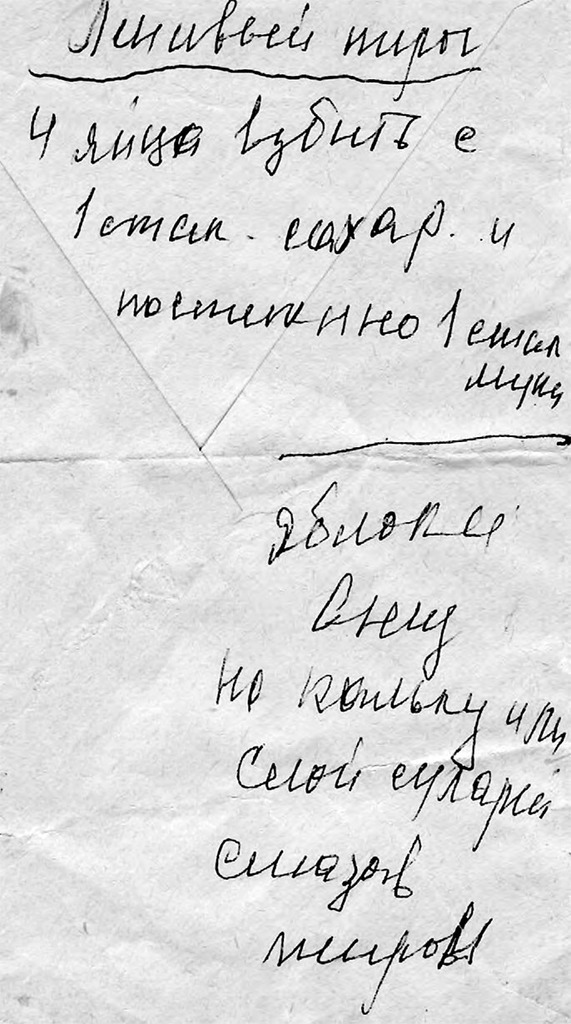 Ленивый пирог
4 яйца взбить с
1 стак. сахар. и
постепенно 1 стак
муки
яблоки
внизу
на кальку или
слой сухарей
смазав
жиром